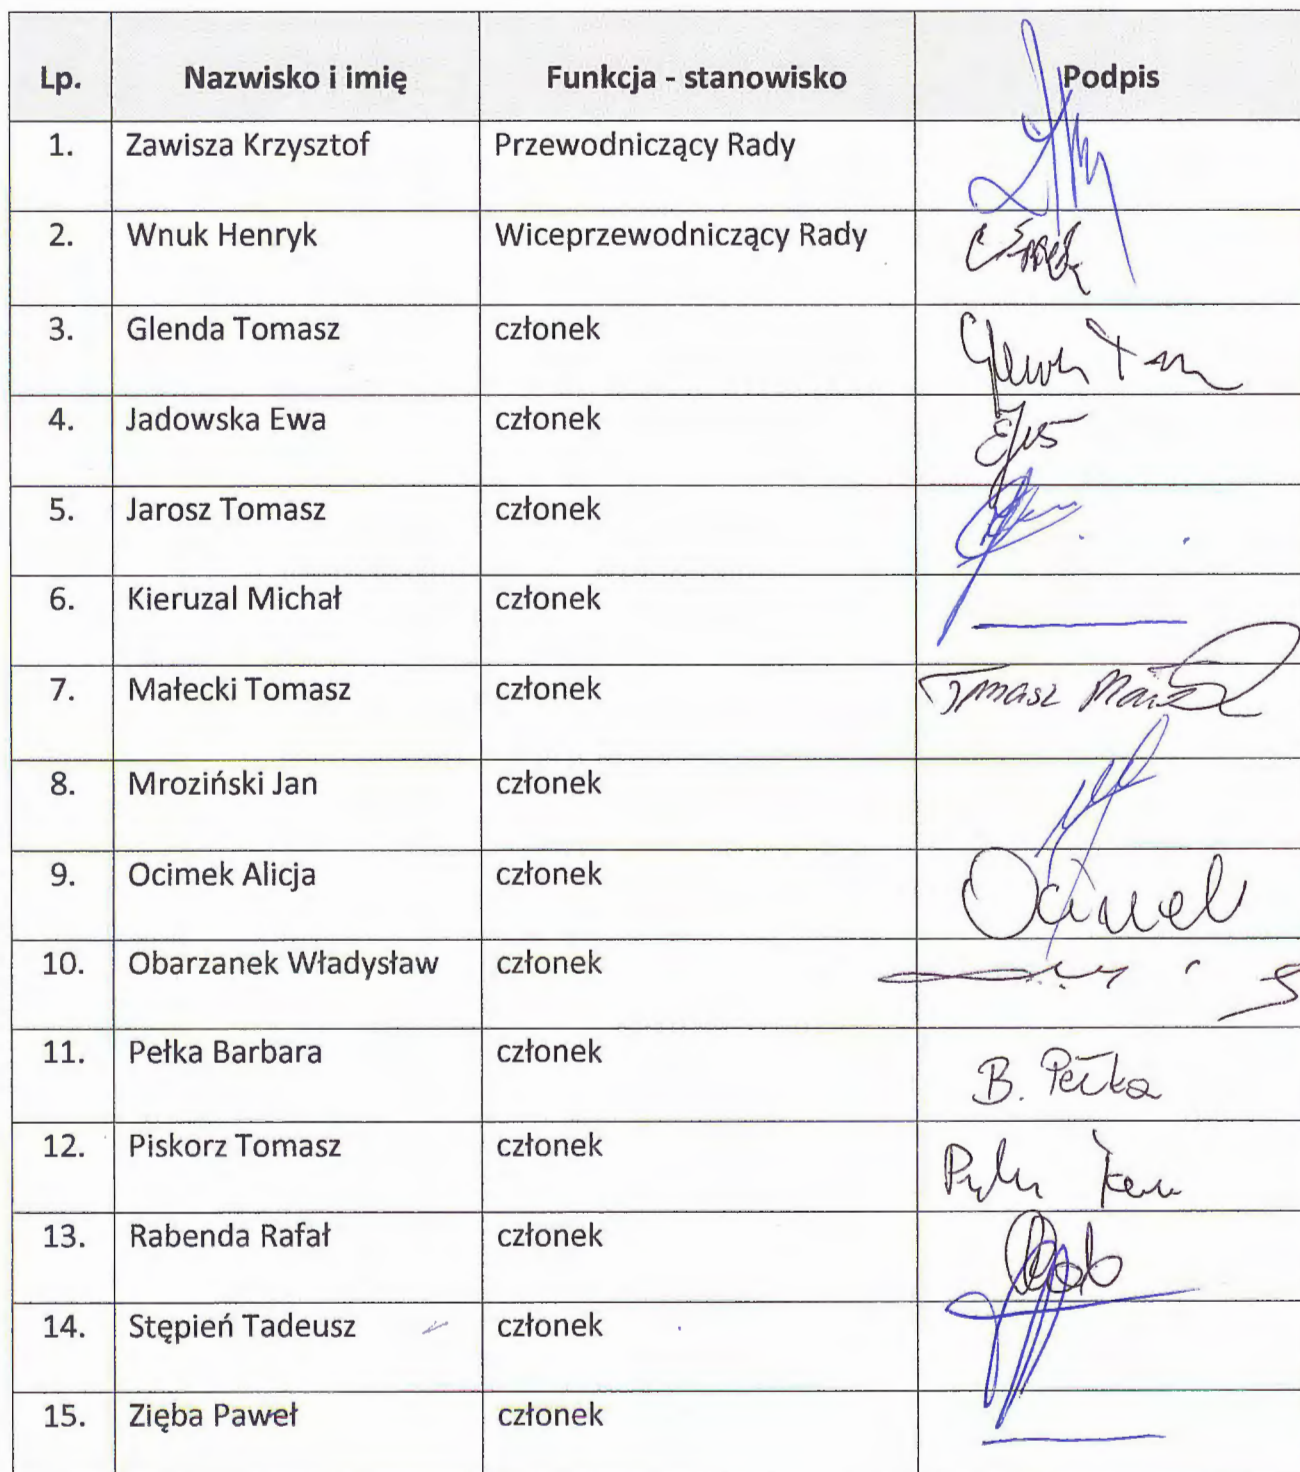 Lp. Nazwisko i imię Funkcja - stanowisko Podpis
1. Zawisza Krzysztof Przewodniczący Rady
2. Wnuk Henryk Wiceprzewodniczący Rady
3. Glenda Tomasz członek
4. Jadowska Ewa członek
5. Jarosz Tomasz członek
6. Kieruzal Michał członek
7. Małecki Tomasz członek Tomasz
8. Mroziński Jan członek
9. Ocimek Alicja członek Ocimek
10. Obarzanek Władysław członek
11. Pełka Barbara członek B. Pełka
12. Piskorz Tomasz członek
13. Rabenda Rafał członek
14. Stępień Tadeusz członek
15. Zięba Paweł członek